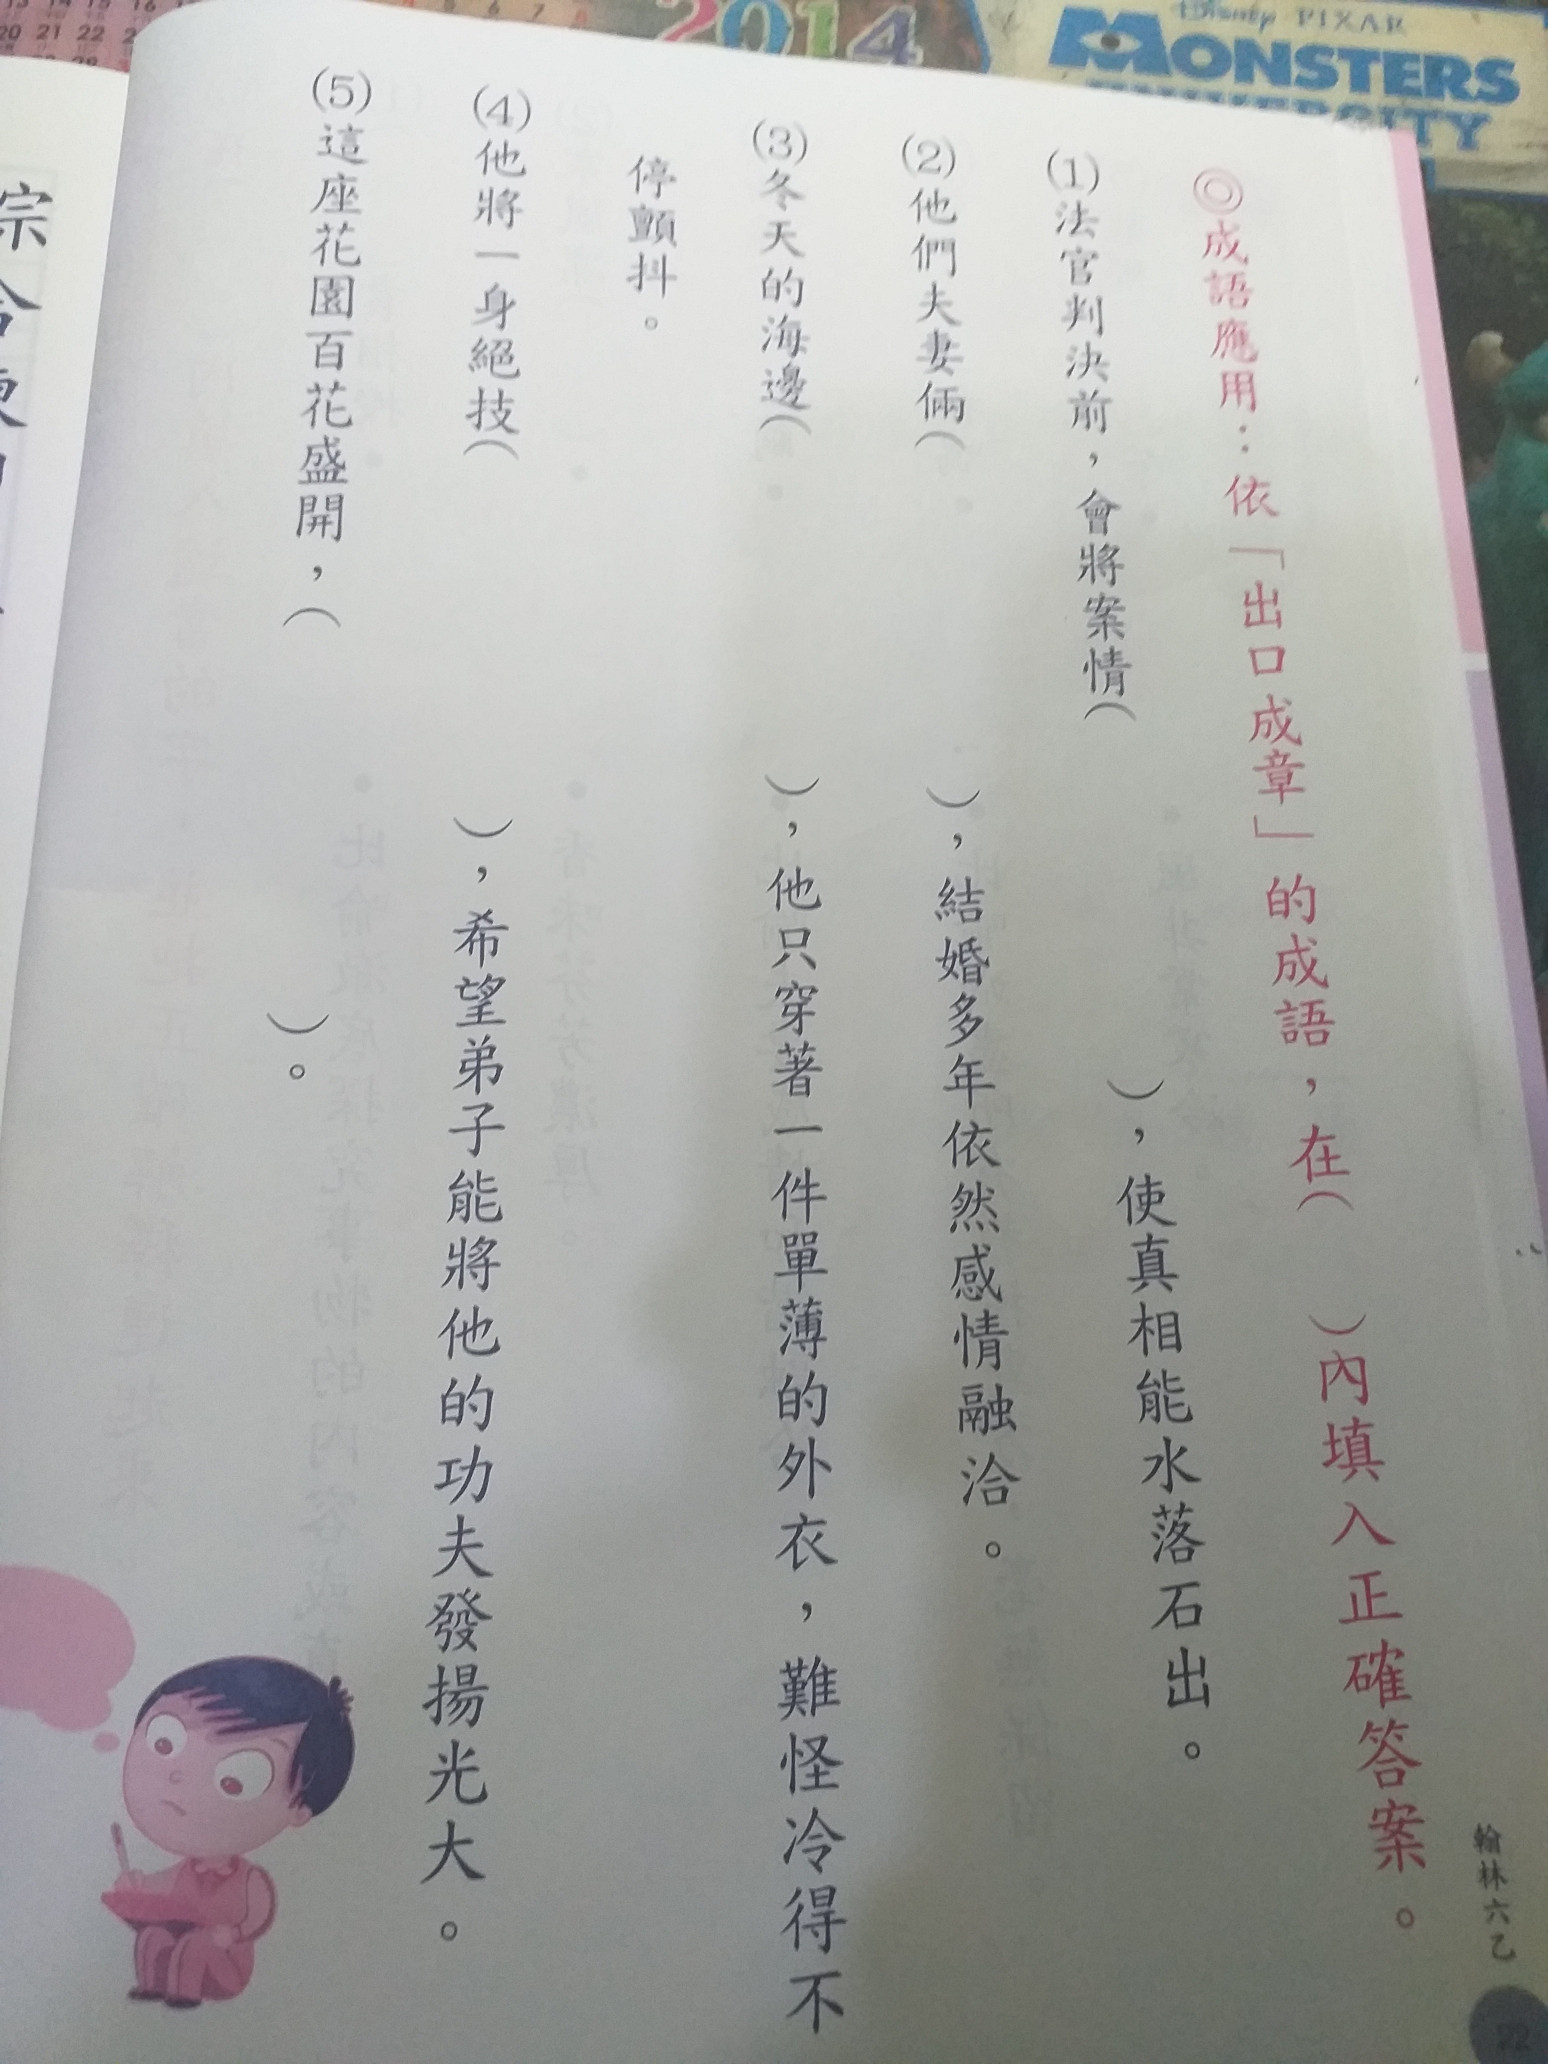 ◎成語應用：依「出口成章」的成語，在(　)內填入正確答案。
(1)法官判決前，會將案情(　)，使真相能水落石出。
(2)他們夫妻倆(　)，結婚多年依然感情融洽。
(3)冬天的海邊(　)，他只穿著一件單薄的外衣，難怪冷得不
停顫抖。
(4)他將一身絕技(　)，希望弟子能將他的功夫發揚光大。
(5)這座花園百花盛開，(　)。
翰林六乙
22
2014
Disney PIXAR
MONSTERS
UNIVERSITY